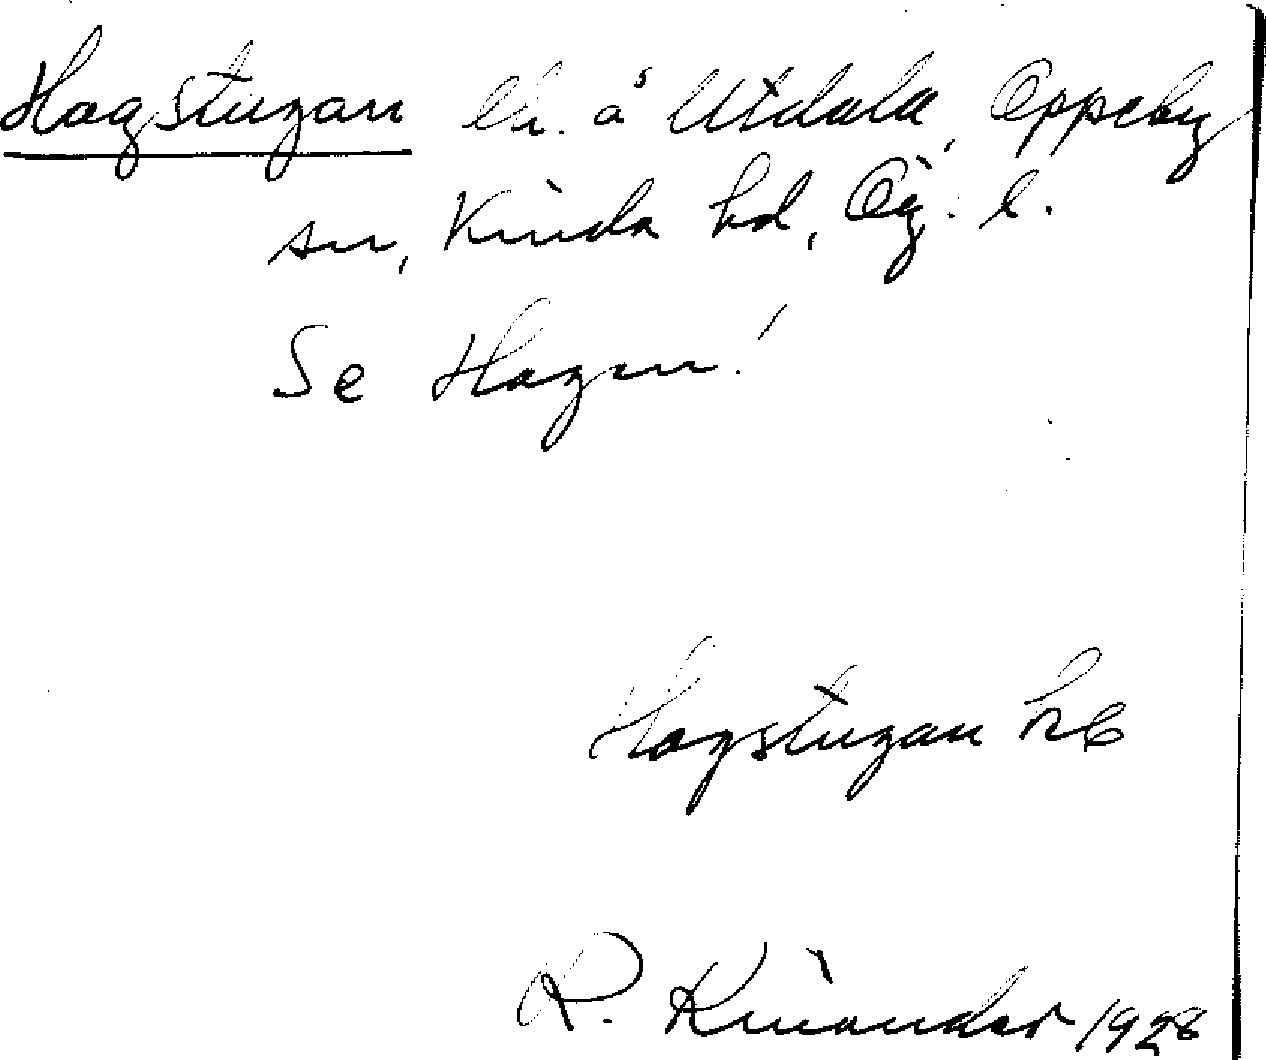 Hagstugan lh. å Utdala, Oppeby
sn, Kinda hd, Ög. l.
Se Hagen!
Hagstugan hb
R. Kinander 1928